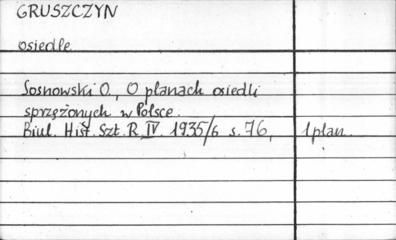 GRUSZCZYN
osiedle
Sosnowski O., O planach osiedli
sprzężonych w Polsce.
Biul. Hist. Szt. R. IV. 1935/6 s. 76, 1 plan.